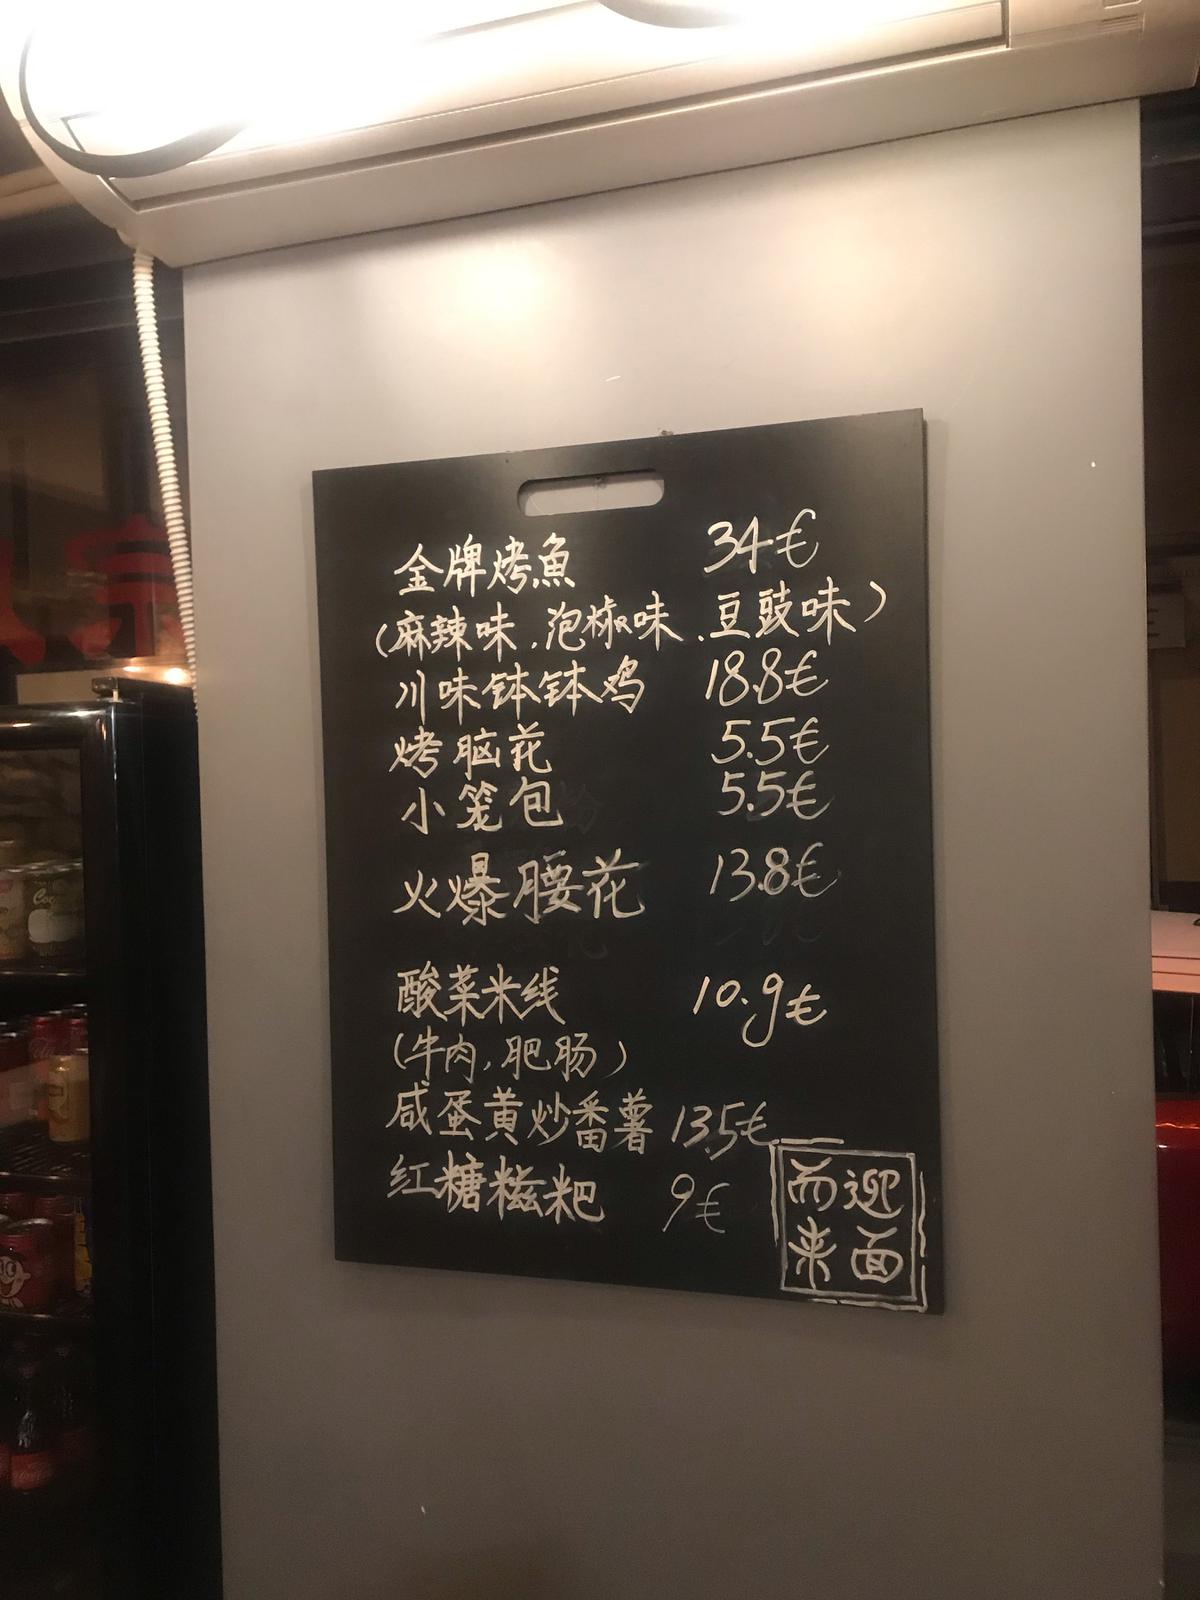 金牌烤魚 34€
(麻辣味.泡椒味.豆豉味)
川味钵钵鸡 18.8€
烤脑花 5.5€
小笼包 5.5€
火爆腰花 13.8€
酸菜米线 10.9€
(牛肉,肥肠)
咸蛋黄炒番薯 13.5€
红糖糍粑 9€
迎面
而来